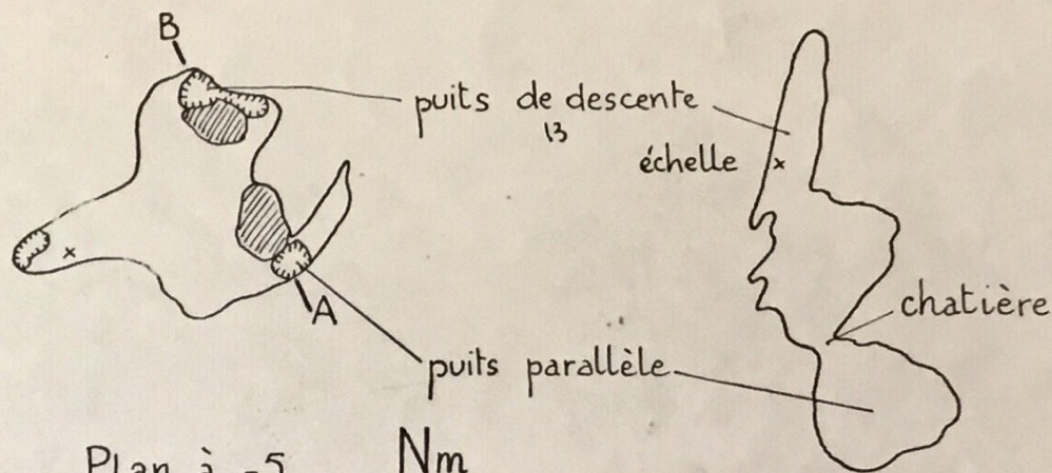 B
puits de descente
13
échelle x
chatière
x
A
puits parallèle
Plan à -5
Nm